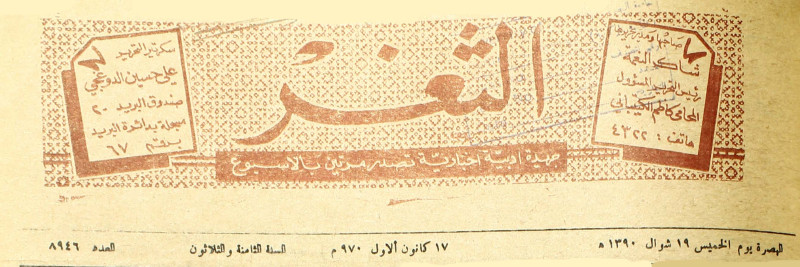 صاحبها ومدير تحريرها
شاكر النعمة
رئيس التحرير المسؤول
المحامي كاظم الكيباني
هاتف : ٤٣٢٢
الثغر
جريدة ادبية اخبارية تصدر مرتين بالاسبوع
سكرتير التحرير
علي حسين الدوغجي
صندوق البريد ٢٠
مسجلة بدائرة البريد
برقم ٦٧
البصرة يوم الخميس ١٩ شوال ١٣٩٠ ه
١٧ كانون الاول ٩٧٠ م
السنة الثامنة والثلاثون
العدد ٨٩٤٦